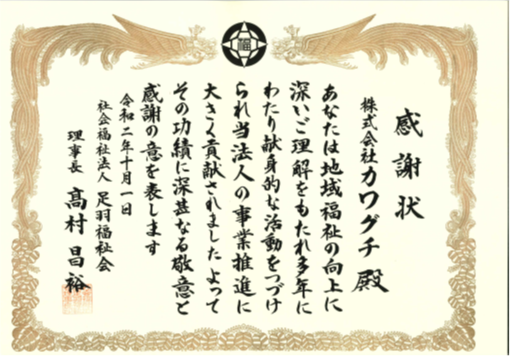 福
感謝状
株式会社カワグチ殿
あなたは地域福祉の向上に
深いご理解をもたれ多年に
わたり献身的な活動をつづけ
られ当法人の事業推進に
大きく貢献されました よって
その功績に深甚なる敬意と
感謝の意を表します
令和二年十月一日
社会福祉法人 足羽福祉会
理事長 髙村昌裕